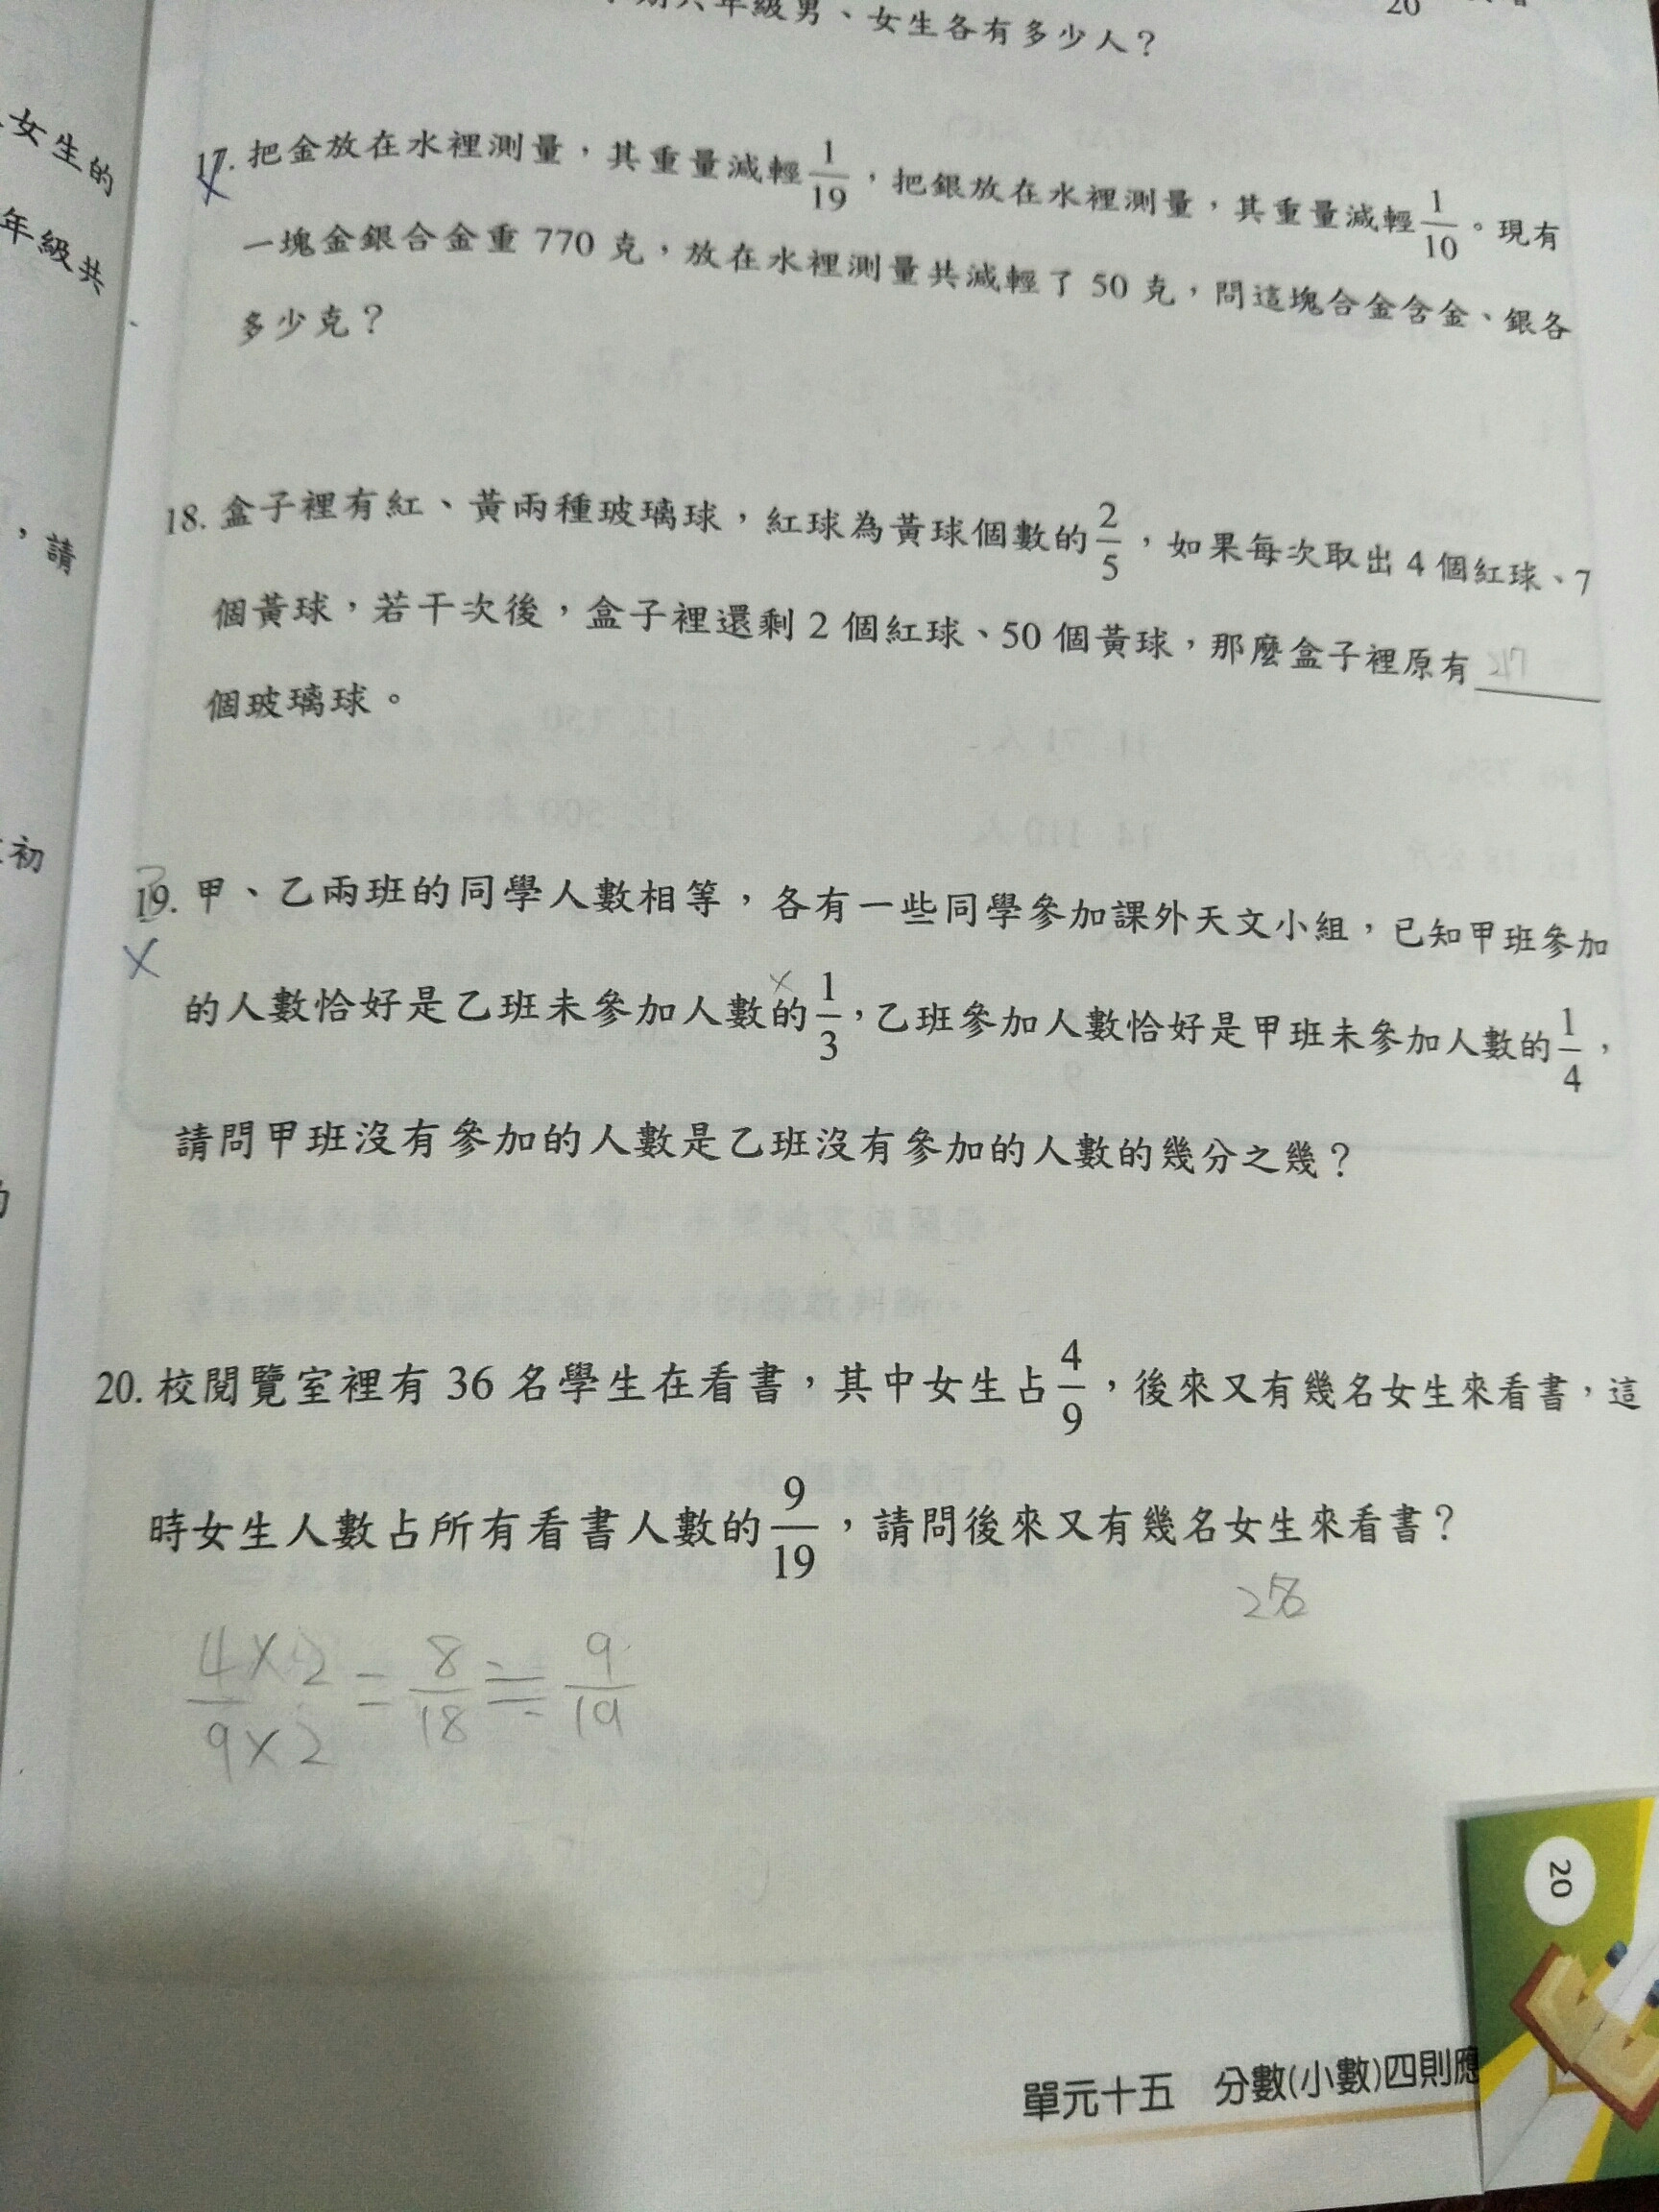 年級男、女生各有多少人？
20
女生的
年級共
，請
初
17. 把金放在水裡測量，其重量減輕1/19，把銀放在水裡測量，其重量減輕1/10。現有
一塊金銀合金重 770 克，放在水裡測量共減輕了 50 克，問這塊合金含金、銀各
多少克？
18. 盒子裡有紅、黃兩種玻璃球，紅球為黃球個數的2/5，如果每次取出 4 個紅球、7
個黃球，若干次後，盒子裡還剩 2 個紅球、50 個黃球，那麼盒子裡原有
個玻璃球。
19. 甲、乙兩班的同學人數相等，各有一些同學參加課外天文小組，已知甲班參加
的人數恰好是乙班未參加人數的1/3，乙班參加人數恰好是甲班未參加人數的1/4，
請問甲班沒有參加的人數是乙班沒有參加的人數的幾分之幾？
20. 校閱覽室裡有 36 名學生在看書，其中女生占4/9，後來又有幾名女生來看書，這
時女生人數占所有看書人數的9/19，請問後來又有幾名女生來看書？
4×2/9×2 = 8/18 = 9/19
20
單元十五 分數(小數)四則應